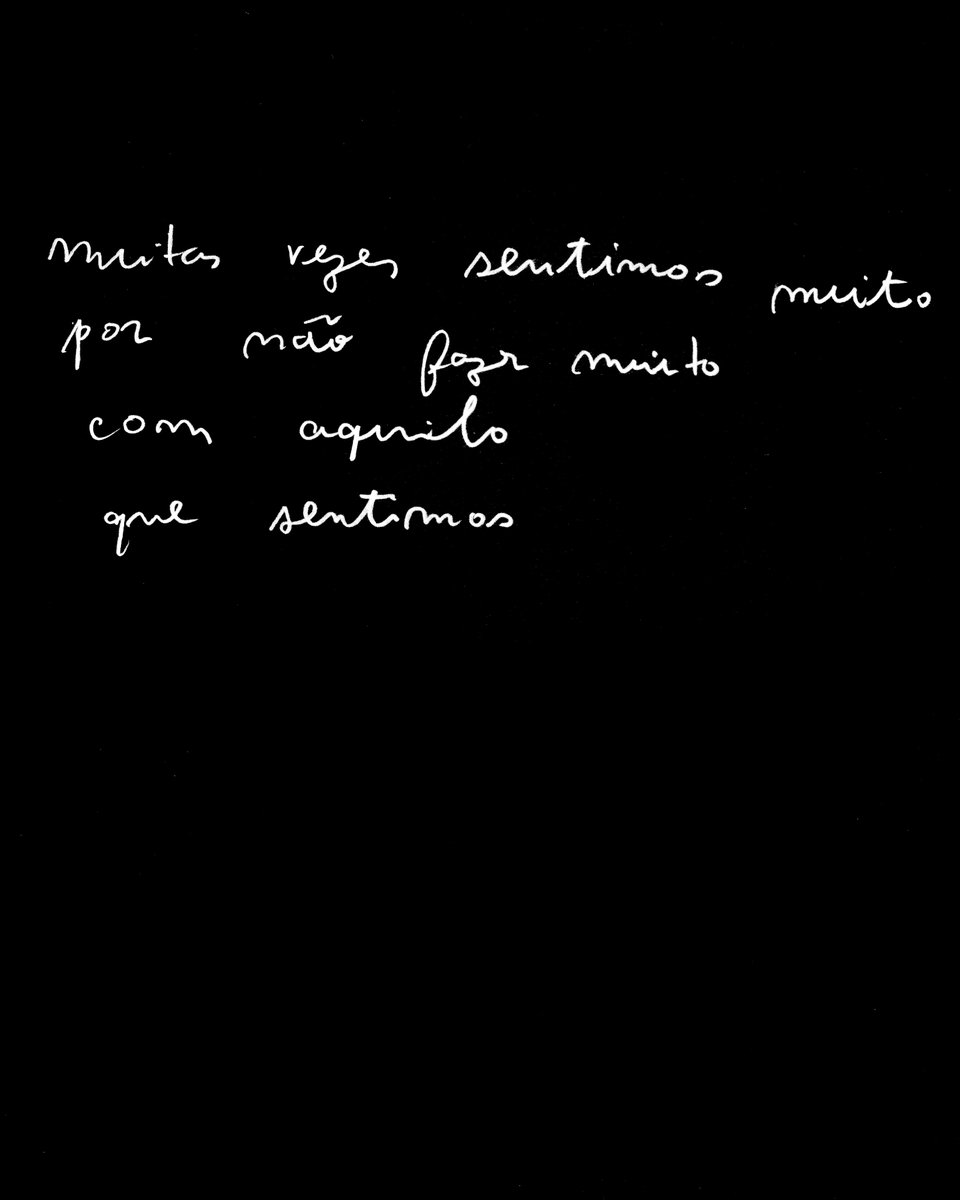 muitas vezes sentimos muito
por não fazer muito
com aquilo
que sentimos